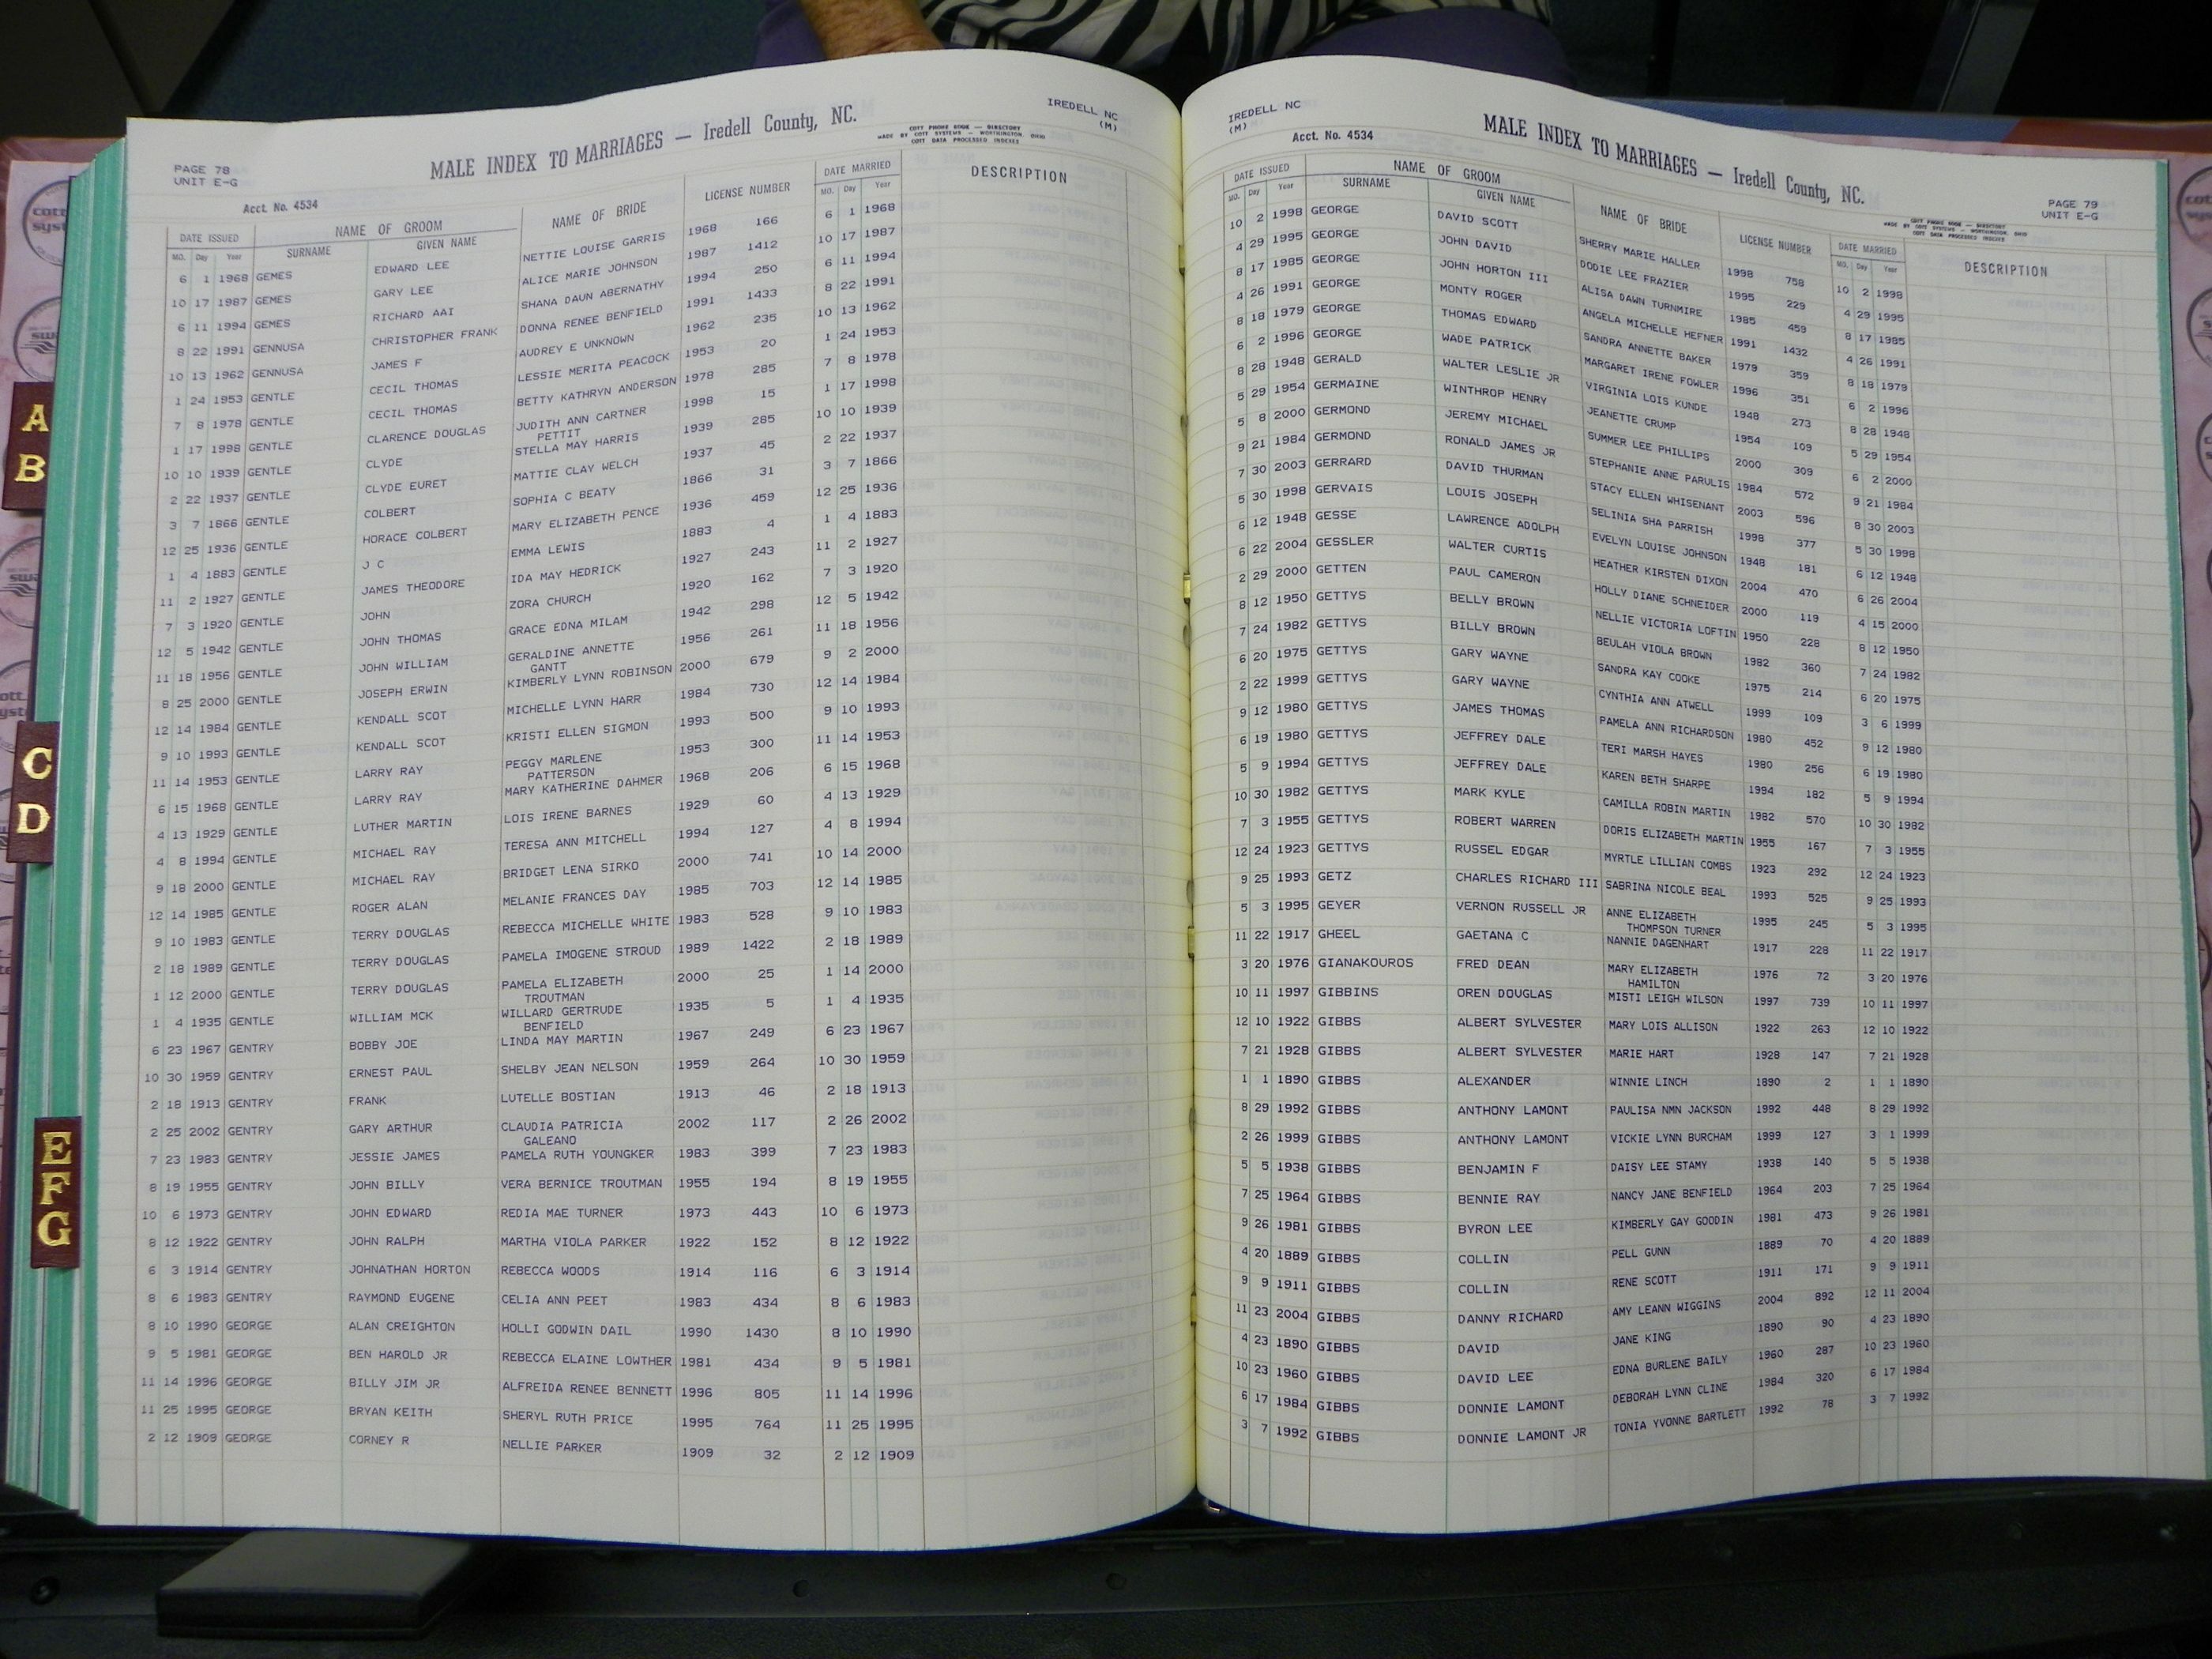 IREDELL NC
(M)
MALE INDEX TO MARRIAGES — Iredell County, NC.
COTT PHONE BOOK — DIRECTORY
MADE BY COTT SYSTEMS — WORTHINGTON, OHIO
COTT DATA PROCESSED INDEXES
PAGE 78
UNIT E-G
Acct. No. 4534
DATE ISSUED NAME OF GROOM NAME OF BRIDE LICENSE NUMBER DATE MARRIED DESCRIPTION
MO. Day Year SURNAME GIVEN NAME MO. Day Year
6 1 1968 GEMES EDWARD LEE NETTIE LOUISE GARRIS 1968 166 6 1 1968
10 17 1987 GEMES GARY LEE ALICE MARIE JOHNSON 1987 1412 10 17 1987
6 11 1994 GEMES RICHARD AAI SHANA DAUN ABERNATHY 1994 250 6 11 1994
8 22 1991 GENNUSA CHRISTOPHER FRANK DONNA RENEE BENFIELD 1991 1433 8 22 1991
10 13 1962 GENNUSA JAMES F AUDREY E UNKNOWN 1962 235 10 13 1962
1 24 1953 GENTLE CECIL THOMAS LESSIE MERITA PEACOCK 1953 20 1 24 1953
7 8 1978 GENTLE CECIL THOMAS BETTY KATHRYN ANDERSON 1978 285 7 8 1978
1 17 1998 GENTLE CLARENCE DOUGLAS JUDITH ANN CARTNER 1998 15 1 17 1998
PETTIT
10 10 1939 GENTLE CLYDE STELLA MAY HARRIS 1939 285 10 10 1939
2 22 1937 GENTLE CLYDE EURET MATTIE CLAY WELCH 1937 45 2 22 1937
3 7 1866 GENTLE COLBERT SOPHIA C BEATY 1866 31 3 7 1866
12 25 1936 GENTLE HORACE COLBERT MARY ELIZABETH PENCE 1936 459 12 25 1936
1 4 1883 GENTLE J C EMMA LEWIS 1883 4 1 4 1883
11 2 1927 GENTLE JAMES THEODORE IDA MAY HEDRICK 1927 243 11 2 1927
7 3 1920 GENTLE JOHN ZORA CHURCH 1920 162 7 3 1920
12 5 1942 GENTLE JOHN THOMAS GRACE EDNA MILAM 1942 298 12 5 1942
11 18 1956 GENTLE JOHN WILLIAM GERALDINE ANNETTE 1956 261 11 18 1956
GANTT
8 25 2000 GENTLE JOSEPH ERWIN KIMBERLY LYNN ROBINSON 2000 679 9 2 2000
12 14 1984 GENTLE KENDALL SCOT MICHELLE LYNN HARR 1984 730 12 14 1984
9 10 1993 GENTLE KENDALL SCOT KRISTI ELLEN SIGMON 1993 500 9 10 1993
11 14 1953 GENTLE LARRY RAY PEGGY MARLENE 1953 300 11 14 1953
PATTERSON
6 15 1968 GENTLE LARRY RAY MARY KATHERINE DAHMER 1968 206 6 15 1968
4 13 1929 GENTLE LUTHER MARTIN LOIS IRENE BARNES 1929 60 4 13 1929
4 8 1994 GENTLE MICHAEL RAY TERESA ANN MITCHELL 1994 127 4 8 1994
9 18 2000 GENTLE MICHAEL RAY BRIDGET LENA SIRKO 2000 741 10 14 2000
12 14 1985 GENTLE ROGER ALAN MELANIE FRANCES DAY 1985 703 12 14 1985
9 10 1983 GENTLE TERRY DOUGLAS REBECCA MICHELLE WHITE 1983 528 9 10 1983
2 18 1989 GENTLE TERRY DOUGLAS PAMELA IMOGENE STROUD 1989 1422 2 18 1989
1 12 2000 GENTLE TERRY DOUGLAS PAMELA ELIZABETH 2000 25 1 14 2000
TROUTMAN
1 4 1935 GENTLE WILLIAM MCK WILLARD GERTRUDE 1935 5 1 4 1935
BENFIELD
6 23 1967 GENTRY BOBBY JOE LINDA MAY MARTIN 1967 249 6 23 1967
10 30 1959 GENTRY ERNEST PAUL SHELBY JEAN NELSON 1959 264 10 30 1959
2 18 1913 GENTRY FRANK LUTELLE BOSTIAN 1913 46 2 18 1913
2 25 2002 GENTRY GARY ARTHUR CLAUDIA PATRICIA 2002 117 2 26 2002
GALEANO
7 23 1983 GENTRY JESSIE JAMES PAMELA RUTH YOUNGKER 1983 399 7 23 1983
8 19 1955 GENTRY JOHN BILLY VERA BERNICE TROUTMAN 1955 194 8 19 1955
10 6 1973 GENTRY JOHN EDWARD REDIA MAE TURNER 1973 443 10 6 1973
8 12 1922 GENTRY JOHN RALPH MARTHA VIOLA PARKER 1922 152 8 12 1922
6 3 1914 GENTRY JOHNATHAN HORTON REBECCA WOODS 1914 116 6 3 1914
8 6 1983 GENTRY RAYMOND EUGENE CELIA ANN PEET 1983 434 8 6 1983
8 10 1990 GEORGE ALAN CREIGHTON HOLLI GODWIN DAIL 1990 1430 8 10 1990
9 5 1981 GEORGE BEN HAROLD JR REBECCA ELAINE LOWTHER 1981 434 9 5 1981
11 14 1996 GEORGE BILLY JIM JR ALFREIDA RENEE BENNETT 1996 805 11 14 1996
11 25 1995 GEORGE BRYAN KEITH SHERYL RUTH PRICE 1995 764 11 25 1995
2 12 1909 GEORGE CORNEY R NELLIE PARKER 1909 32 2 12 1909
IREDELL NC
(M)
Acct. No. 4534
MALE INDEX TO MARRIAGES — Iredell County, NC.
COTT PHONE BOOK — DIRECTORY
MADE BY COTT SYSTEMS — WORTHINGTON, OHIO
COTT DATA PROCESSED INDEXES
PAGE 79
UNIT E-G
DATE ISSUED NAME OF GROOM NAME OF BRIDE LICENSE NUMBER DATE MARRIED DESCRIPTION
MO. Day Year SURNAME GIVEN NAME MO. Day Year
10 2 1998 GEORGE DAVID SCOTT SHERRY MARIE HALLER 1998 758 10 2 1998
4 29 1995 GEORGE JOHN DAVID DODIE LEE FRAZIER 1995 229 4 29 1995
8 17 1985 GEORGE JOHN HORTON III ALISA DAWN TURNMIRE 1985 459 8 17 1985
4 26 1991 GEORGE MONTY ROGER ANGELA MICHELLE HEFNER 1991 1432 4 26 1991
8 18 1979 GEORGE THOMAS EDWARD SANDRA ANNETTE BAKER 1979 359 8 18 1979
6 2 1996 GEORGE WADE PATRICK MARGARET IRENE FOWLER 1996 351 6 2 1996
8 28 1948 GERALD WALTER LESLIE JR VIRGINIA LOIS KUNDE 1948 273 8 28 1948
5 29 1954 GERMAINE WINTHROP HENRY JEANETTE CRUMP 1954 109 5 29 1954
5 8 2000 GERMOND JEREMY MICHAEL SUMMER LEE PHILLIPS 2000 309 6 2 2000
9 21 1984 GERMOND RONALD JAMES JR STEPHANIE ANNE PARULIS 1984 572 9 21 1984
7 30 2003 GERRARD DAVID THURMAN STACY ELLEN WHISENANT 2003 596 8 30 2003
5 30 1998 GERVAIS LOUIS JOSEPH SELINIA SHA PARRISH 1998 377 5 30 1998
6 12 1948 GESSE LAWRENCE ADOLPH EVELYN LOUISE JOHNSON 1948 181 6 12 1948
6 22 2004 GESSLER WALTER CURTIS HEATHER KIRSTEN DIXON 2004 470 6 26 2004
2 29 2000 GETTEN PAUL CAMERON HOLLY DIANE SCHNEIDER 2000 119 4 15 2000
8 12 1950 GETTYS BELLY BROWN NELLIE VICTORIA LOFTIN 1950 228 8 12 1950
7 24 1982 GETTYS BILLY BROWN BEULAH VIOLA BROWN 1982 360 7 24 1982
6 20 1975 GETTYS GARY WAYNE SANDRA KAY COOKE 1975 214 6 20 1975
2 22 1999 GETTYS GARY WAYNE CYNTHIA ANN ATWELL 1999 109 3 6 1999
9 12 1980 GETTYS JAMES THOMAS PAMELA ANN RICHARDSON 1980 452 9 12 1980
6 19 1980 GETTYS JEFFREY DALE TERI MARSH HAYES 1980 256 6 19 1980
5 9 1994 GETTYS JEFFREY DALE KAREN BETH SHARPE 1994 182 5 9 1994
10 30 1982 GETTYS MARK KYLE CAMILLA ROBIN MARTIN 1982 570 10 30 1982
7 3 1955 GETTYS ROBERT WARREN DORIS ELIZABETH MARTIN 1955 167 7 3 1955
12 24 1923 GETTYS RUSSEL EDGAR MYRTLE LILLIAN COMBS 1923 292 12 24 1923
9 25 1993 GETZ CHARLES RICHARD III SABRINA NICOLE BEAL 1993 525 9 25 1993
5 3 1995 GEYER VERNON RUSSELL JR ANNE ELIZABETH 1995 245 5 3 1995
THOMPSON TURNER
11 22 1917 GHEEL GAETANA C NANNIE DAGENHART 1917 228 11 22 1917
3 20 1976 GIANAKOUROS FRED DEAN MARY ELIZABETH 1976 72 3 20 1976
HAMILTON
10 11 1997 GIBBINS OREN DOUGLAS MISTI LEIGH WILSON 1997 739 10 11 1997
12 10 1922 GIBBS ALBERT SYLVESTER MARY LOIS ALLISON 1922 263 12 10 1922
7 21 1928 GIBBS ALBERT SYLVESTER MARIE HART 1928 147 7 21 1928
1 1 1890 GIBBS ALEXANDER WINNIE LINCH 1890 2 1 1 1890
8 29 1992 GIBBS ANTHONY LAMONT PAULISA NMN JACKSON 1992 448 8 29 1992
2 26 1999 GIBBS ANTHONY LAMONT VICKIE LYNN BURCHAM 1999 127 3 1 1999
5 5 1938 GIBBS BENJAMIN F DAISY LEE STAMY 1938 140 5 5 1938
7 25 1964 GIBBS BENNIE RAY NANCY JANE BENFIELD 1964 203 7 25 1964
9 26 1981 GIBBS BYRON LEE KIMBERLY GAY GOODIN 1981 473 9 26 1981
4 20 1889 GIBBS COLLIN PELL GUNN 1889 70 4 20 1889
9 9 1911 GIBBS COLLIN RENE SCOTT 1911 171 9 9 1911
11 23 2004 GIBBS DANNY RICHARD AMY LEANN WIGGINS 2004 892 12 11 2004
4 23 1890 GIBBS DAVID JANE KING 1890 90 4 23 1890
10 23 1960 GIBBS DAVID LEE EDNA BURLENE BAILY 1960 287 10 23 1960
6 17 1984 GIBBS DONNIE LAMONT DEBORAH LYNN CLINE 1984 320 6 17 1984
3 7 1992 GIBBS DONNIE LAMONT JR TONIA YVONNE BARTLETT 1992 78 3 7 1992
A
B
C
D
E
F
G